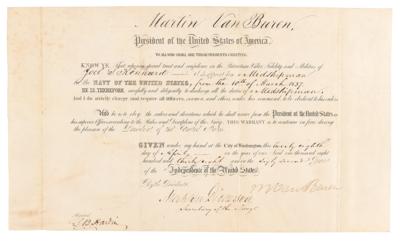 Martin Van Buren,
President of the United States of America,
TO ALL WHO SHALL SEE THESE PRESENTS GREETING:
KNOW YE that reposing special trust and confidence in the Patriotism, Valor, Fidelity and Abilities of
Joel S. Kennard I do appoint him a Midshipman
in the NAVY OF THE UNITED STATES, from the 10th of March 1837
HE IS, THEREFORE, carefully and diligently to discharge all the duties of a Midshipman,
And I do strictly charge and require all officers, seamen and others under his command to be obedient to his orders
And he is to obey the orders and directions which he shall receive from the President of the United States or
his superior Officers according to the Rules and Discipline of the Navy. THIS WARRANT is to continue in force during
the pleasure of the President of the United States
GIVEN under my hand at the City of Washington, this twenty eighth
day of April in the year of our Lord one thousand eight
hundred and thirty eight and in the sixty second Year
of the Independence of the United States.
By the President
M Van Buren
Secretary of the Navy